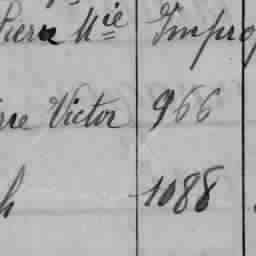 Pierre Mie Impro
rre Victor 966
h 1088